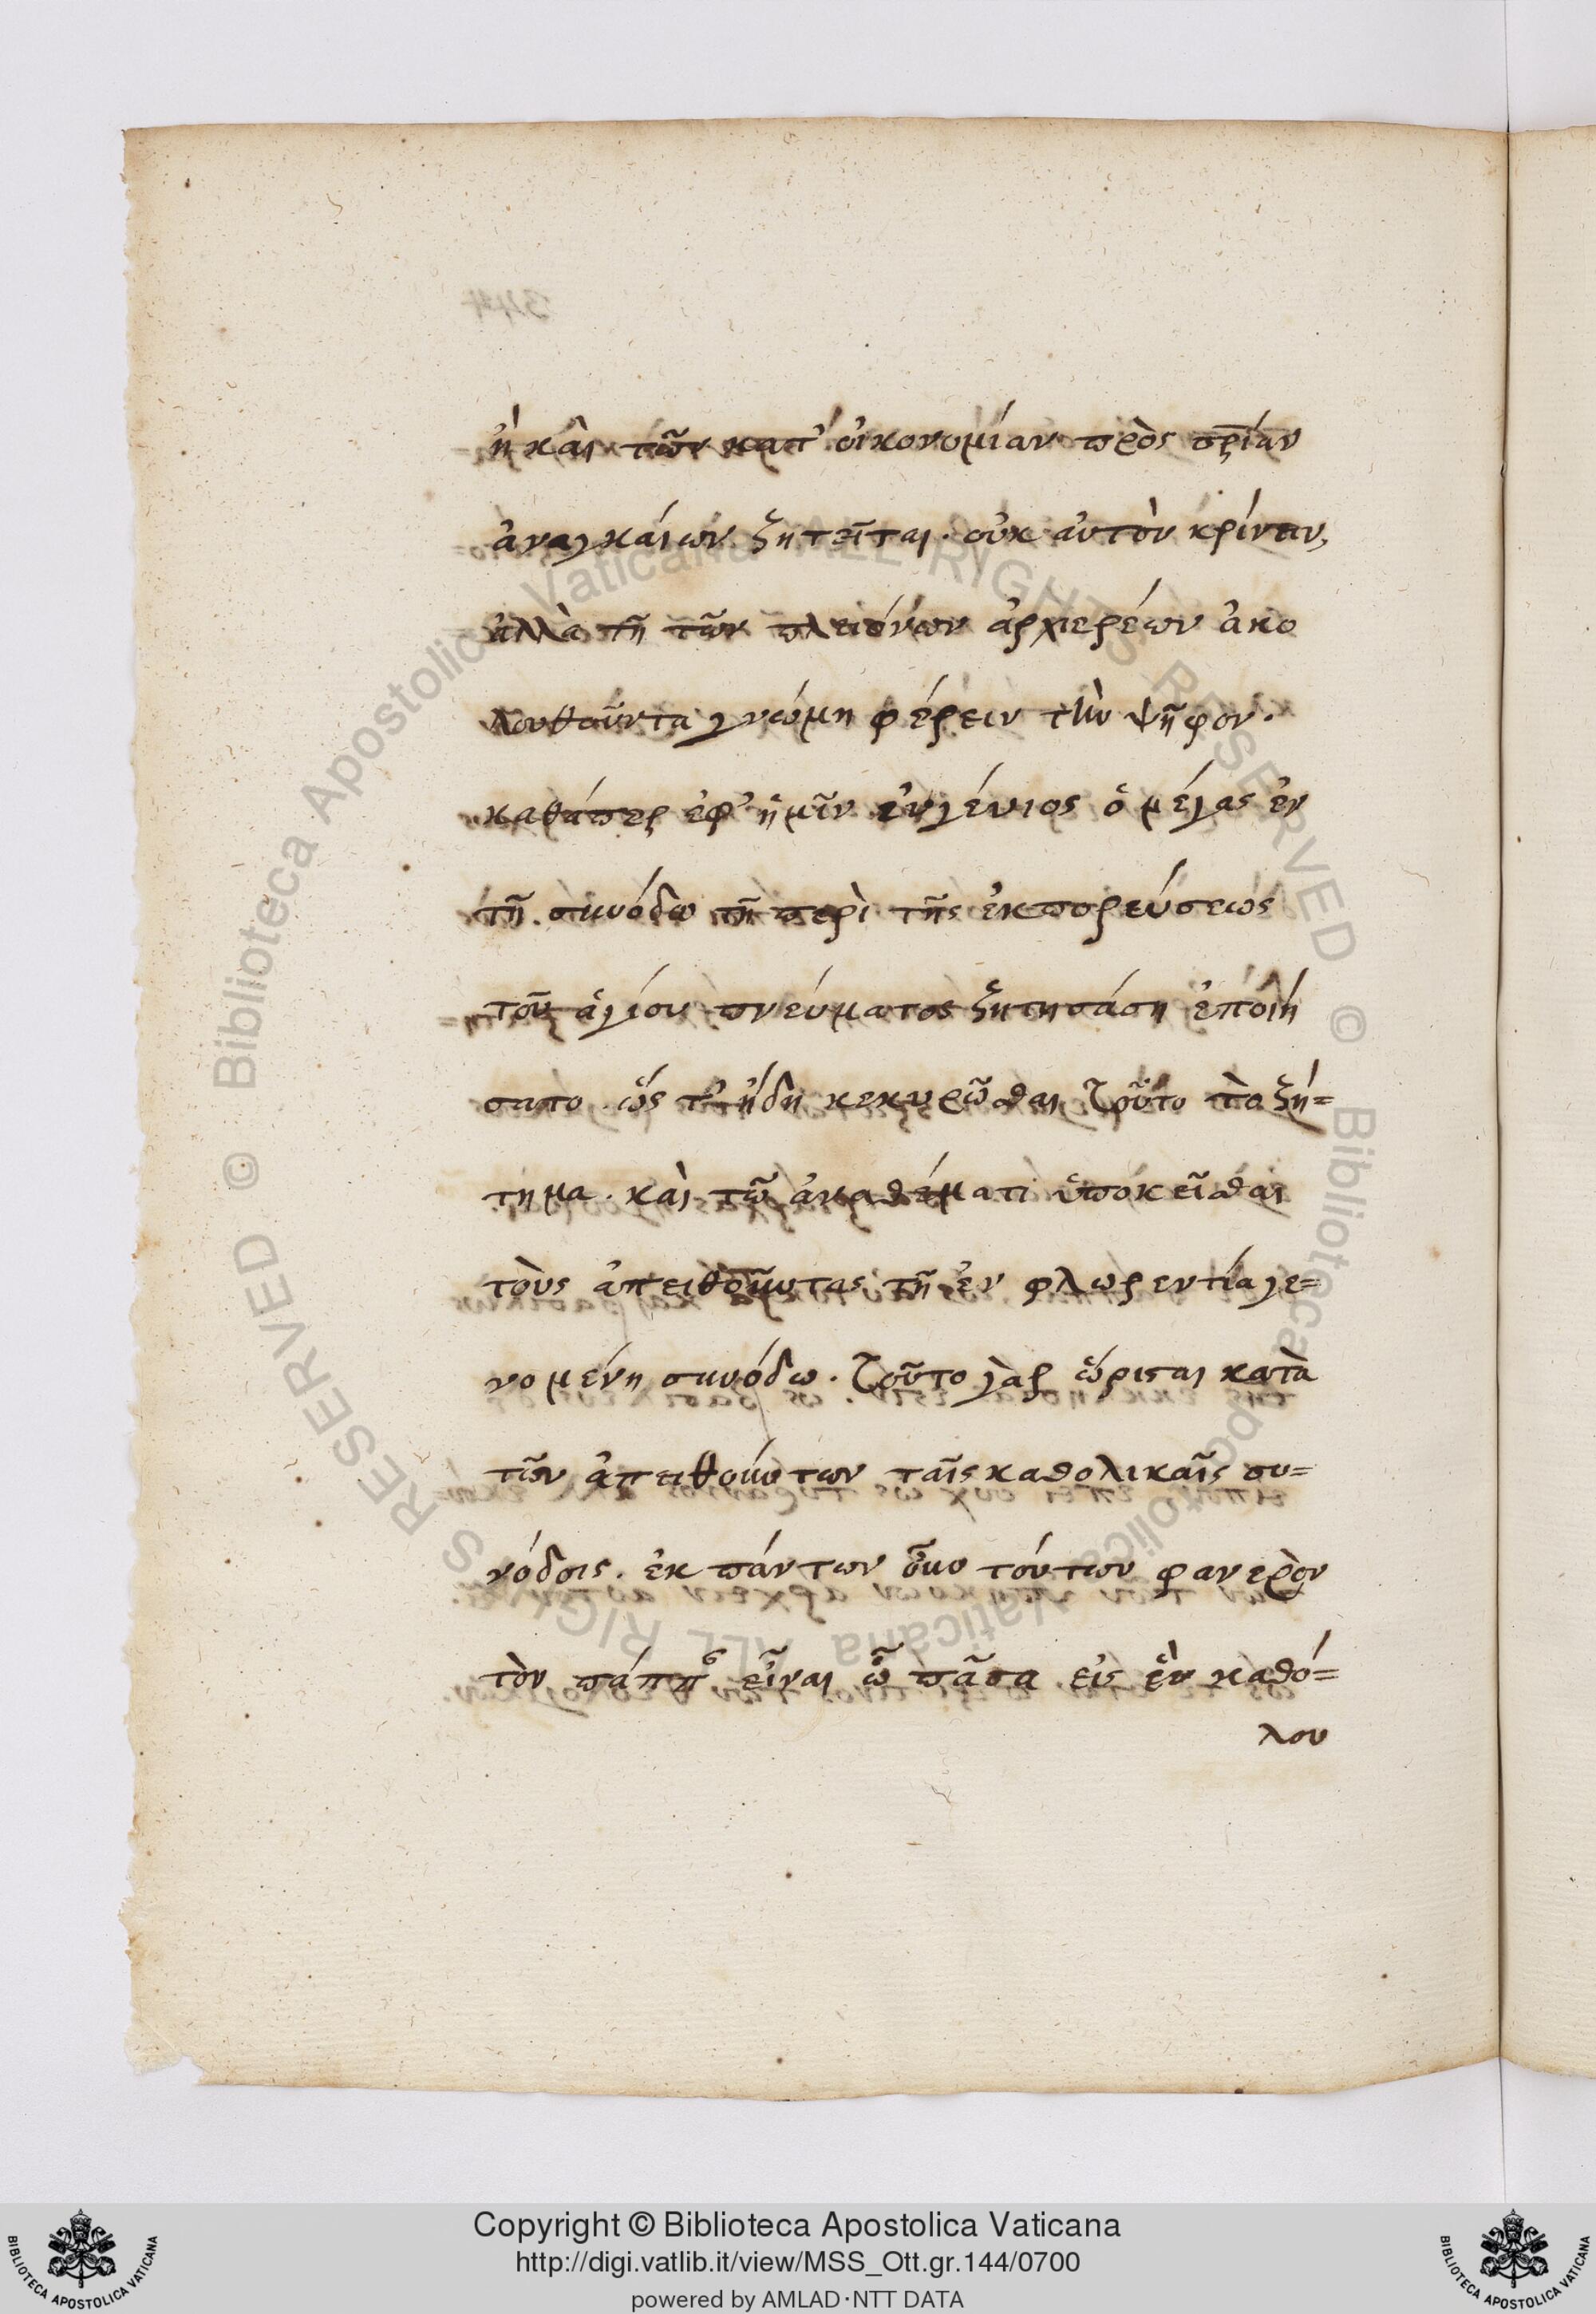 ἢ καὶ τῶν κατ' οἰκονομίαν πρὸς σρίαν
ἀναγκαίων ζητεῖται. οὐκ αὐτὸν κρίνειν,
ἀλλὰ τῇ τῶν πλειόνων ἀρχιερέων ἀκο
λουθοῦντα γνώμη φέρειν τὴν ψῆφον.
καθάπερ ἐφ' ἡμῖν εὐγένιος ὁ μέγας ἐν
τῇ συνόδω τῇ περὶ τῆς ἐκπορεύσεως
τοῦ ἁγίου πνεύματος ζητησάση ἐποιή
σατο. ὥς τ' ἤδη κεκυρῶσθαι τοῦτο τὸ ζή=
τημα. καὶ τῶ ἀναθέματι ὑποκεῖσθαι
τοὺς ἀπειθοῦντας τῇ ἐν φλωρεντία γε=
νομένη συνόδω. τοῦτο γὰρ ὥρισται κατὰ
τῶν ἀπειθούντων ταῖς καθολικαῖς συ=
νόδοις. ἐκ πάντων οὖν τούτων φανερὸν
τὸν πάππον εἶναι ὧ πᾶσα εἰς ἓν καθό=
λου
Copyright © Biblioteca Apostolica Vaticana
http://digi.vatlib.it/view/MSS_Ott.gr.144/0700
powered by AMLAD·NTT DATA